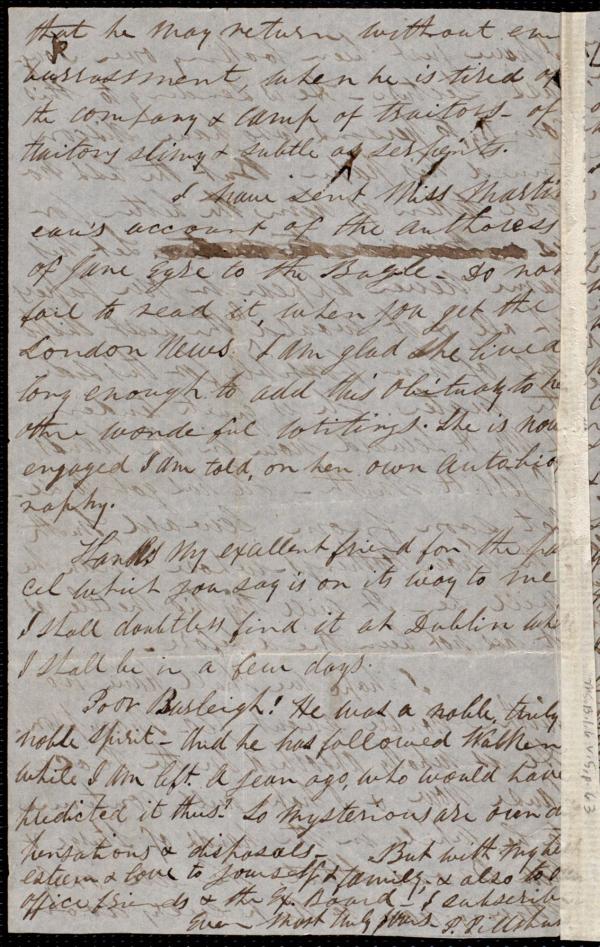 that he may return without em
barrassment, when he is tired of
the company & camp of traitors - of
traitors slimy & subtle as serpents.
I have sent Miss Martin
eau's account of the authoress
of Jane Eyre to the Bugle - Do not
fail to read it, when you get the
London News. I am glad she lived
long enough to add this Obituary to he
other wonderful writings. She is now
engaged I am told, on her own Autobio
raphy.
Thanks my excellent friend for the par
cel which you say is on its way to me
I shall doubtless find it at Dublin whe
I shall be in a few days.
Poor Burleigh! He was a noble, truly
noble spirit - And he has followed Walker
while I am left. A year ago, who would have
predicted it thus! So mysterious are our d
pensations & disposals - But with highes
esteem & love to yourself & family, & also to
office friends & the Ex. Board - I subscrib
Ever - Most truly yours P. Pillsbu